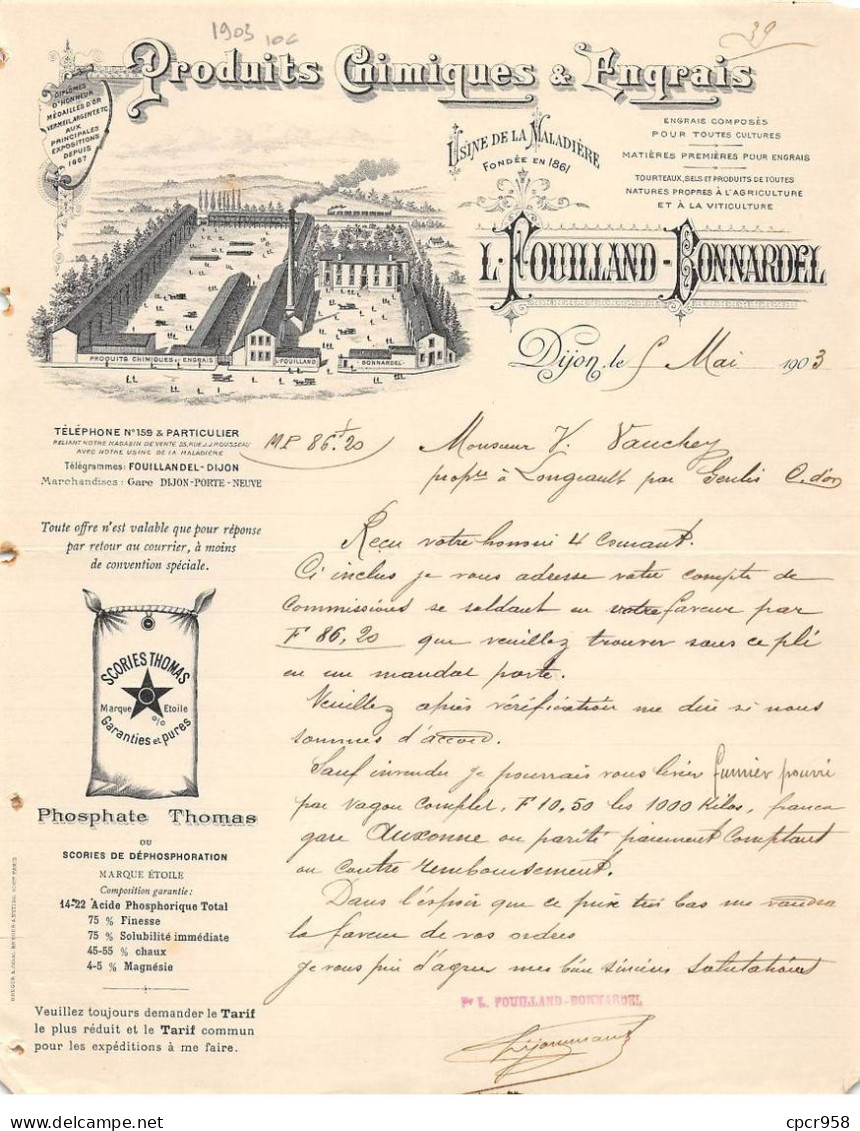 1903 10c
39
Produits Chimiques & Engrais
DIPLÔMES
D'HONNEUR
MÉDAILLES D'OR
VERMEIL, ARGENT, ETC
AUX
PRINCIPALES
EXPOSITIONS
DEPUIS
1867
USINE DE LA MALADIÈRE
FONDÉE EN 1861
ENGRAIS COMPOSÉS
POUR TOUTES CULTURES
MATIÈRES PREMIÈRES POUR ENGRAIS
TOURTEAUX, SELS ET PRODUITS DE TOUTES
NATURES PROPRES À L'AGRICULTURE
ET À LA VITICULTURE
L. FOUILLAND-BONNARDEL
PRODUITS CHIMIQUES ET ENGRAIS
FOUILLAND
BONNARDEL
Dijon, le 5 Mai 1903
TÉLÉPHONE N° 159 & PARTICULIER
RELIANT NOTRE MAGASIN DE VENTE 25, RUE J.J. ROUSSEAU
AVEC NOTRE USINE DE LA MALADIÈRE
Télégrammes: FOUILLANDEL-DIJON
Marchandises: Gare DIJON-PORTE-NEUVE
M.P. 86f20
Monsieur V. Vauchey
propre à Longeault par Genlis C. d'or
Toute offre n'est valable que pour réponse
par retour au courrier, à moins
de convention spéciale.
Reçu votre honoré 4 Courant.
Ci inclus je vous adresse votre compte de
Commissions se soldant en votre faveur par
F 86,20 que veuillez trouver sous ce pli
en un mandat poste.
Veuillez après vérification me dire si nous
sommes d'accord.
Sauf invendu je pourrais vous livrer fumier pourri
par vagon complet, F 10,50 les 1000 Kilos, franco
gare Auxonne ou parité paiement Comptant
ou contre remboursement.
Dans l'espoir que ce prix très bas me vaudra
la faveur de vos ordres
je vous prie d'agréer mes bien sincères salutations
Pr L. FOUILLAND-BONNARDEL
SCORIES THOMAS
Marque Etoile
%
Garanties et pures
Phosphate Thomas
OU
SCORIES DE DÉPHOSPHORATION
MARQUE ÉTOILE
Composition garantie:
14-22 Acide Phosphorique Total
75 % Finesse
75 % Solubilité immédiate
45-55 % chaux
4-5 % Magnésie
Veuillez toujours demander le Tarif
le plus réduit et le Tarif commun
pour les expéditions à me faire.
cpcr958